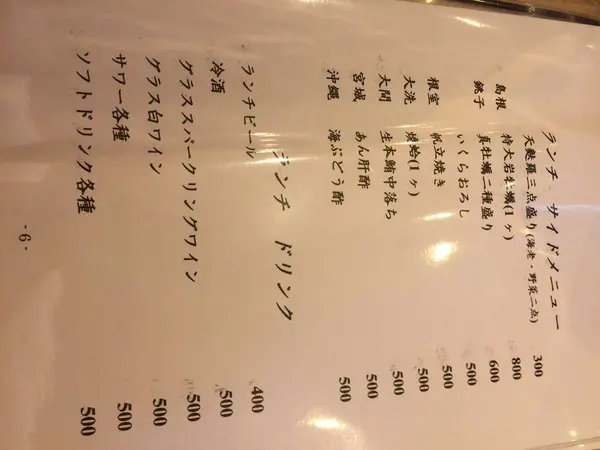 ランチ サイドメニュー
天麩羅三点盛り(海老・野菜二点) 300
島根 特大岩牡蠣(1ヶ) 800
銚子 真牡蠣二種盛り 600
いくらおろし 500
根室 帆立焼き 500
大洗 焼蛤(1ヶ) 500
大間 生本鮪中落ち 500
宮城 あん肝酢 500
沖縄 海ぶどう酢 500
ランチ ドリンク
ランチビール 400
冷酒 500
グラススパークリングワイン 500
グラス白ワイン 500
サワー各種 500
ソフトドリンク各種 500
- 6 -